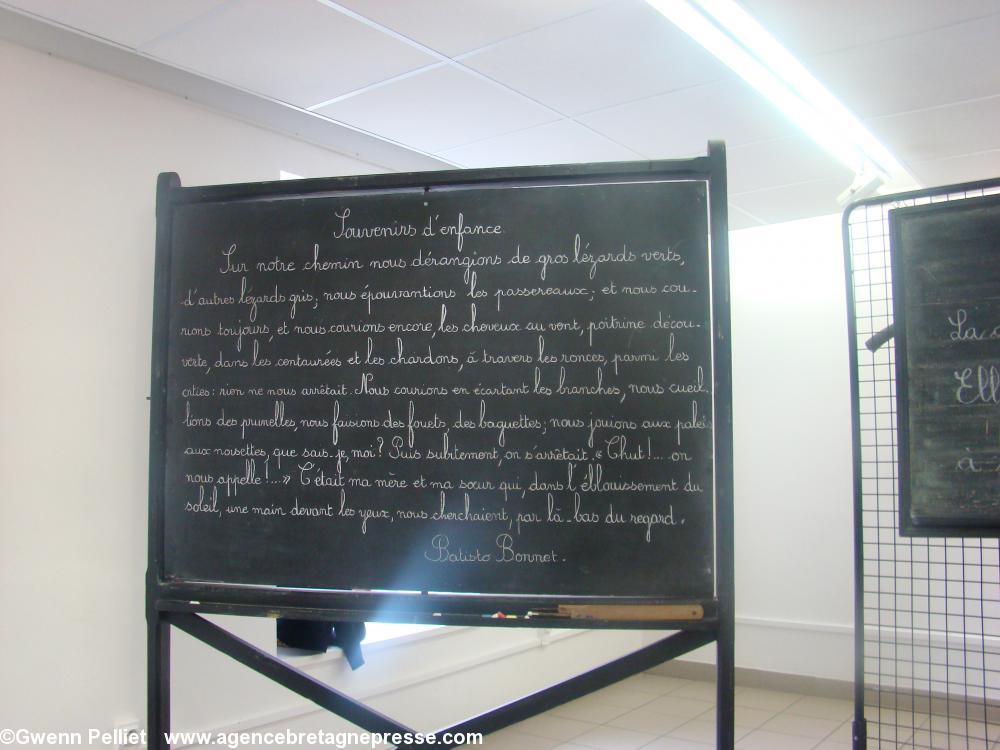 Souvenirs d'enfance.
Sur notre chemin nous dérangions de gros lézards verts,
d'autres lézards gris; nous épouvantions les passereaux; et nous cou-
rions toujours, et nous courions encore, les cheveux au vent, poitrine décou-
verte, dans les centaurées et les chardons, à travers les ronces, parmi les
orties: rien ne nous arrêtait. Nous courions en écartant les branches, nous cueil
lions des prunelles, nous faisions des fouets, des baguettes; nous jouions aux palets
aux noisettes, que sais-je, moi? Puis subitement, on s'arrêtait. « Chut!... on
nous appelle!...» C'était ma mère et ma sœur qui, dans l'éblouissement du
soleil, une main devant les yeux, nous cherchaient, par là-bas du regard.
Batisto Bonnet.
La
Ell
à
©Gwenn Pelliet www.agencebretagnepresse.com